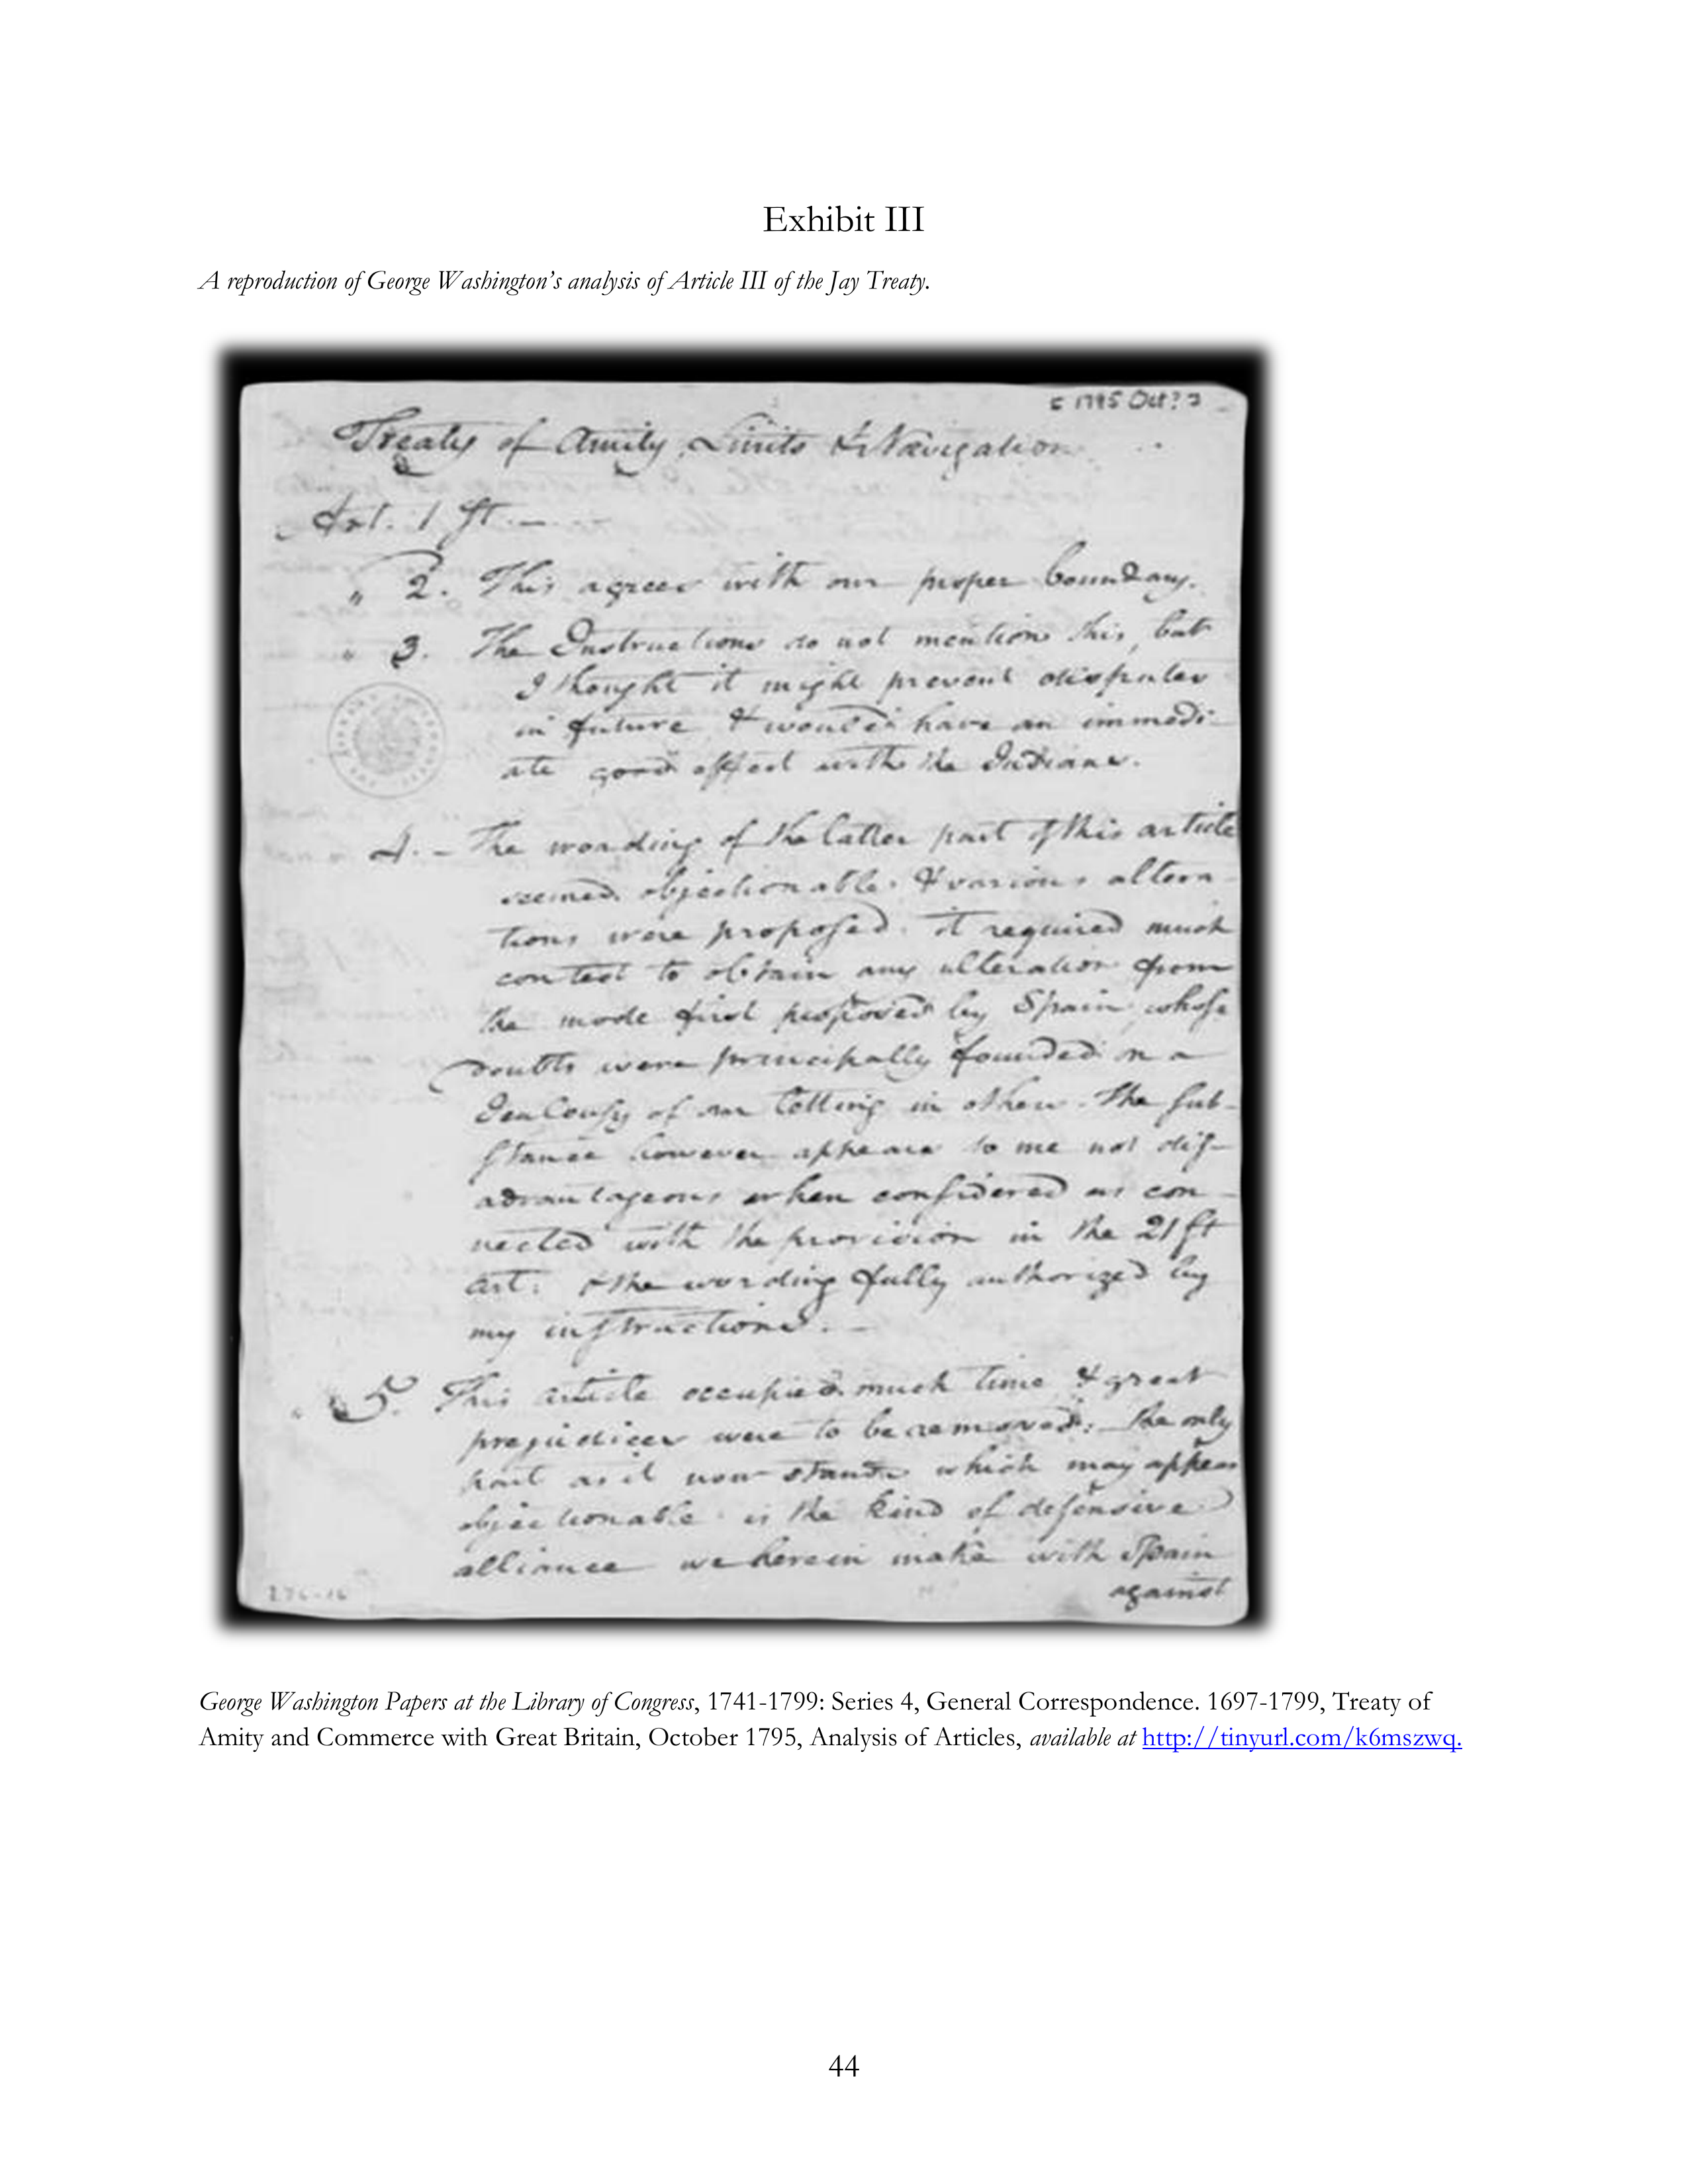 Exhibit III
A reproduction of George Washington's analysis of Article III of the Jay Treaty.
1795 Oct? ?
Treaty of Amity, Limits & Navigation
Art. 1 st. —
" 2. This agrees with our proper boundary.
" 3. The Instructions do not mention this, but
I thought it might prevent disputes
in future & would have an immedi-
ate good effect with the Indians.
4. - The wording of the latter part of this article
seemed objectionable. & various altera-
tions were proposed. it required much
contest to obtain any alteration from
the mode first proposed by Spain, whose
doubts were principally founded on a
Jealousy of our letting in others. The sub-
stance however appears to me not dis-
advantageous when considered as con-
nected with the provision in the 21st
art: & the wording fully authorized by
my instructions. —
5. This article occupied much time & great
prejudices were to be removed: the only
part as it now stands which may appear
objectionable is the kind of defensive
alliance we herein make with Spain
against
George Washington Papers at the Library of Congress, 1741-1799: Series 4, General Correspondence. 1697-1799, Treaty of
Amity and Commerce with Great Britain, October 1795, Analysis of Articles, available at http://tinyurl.com/k6mszwq.
44